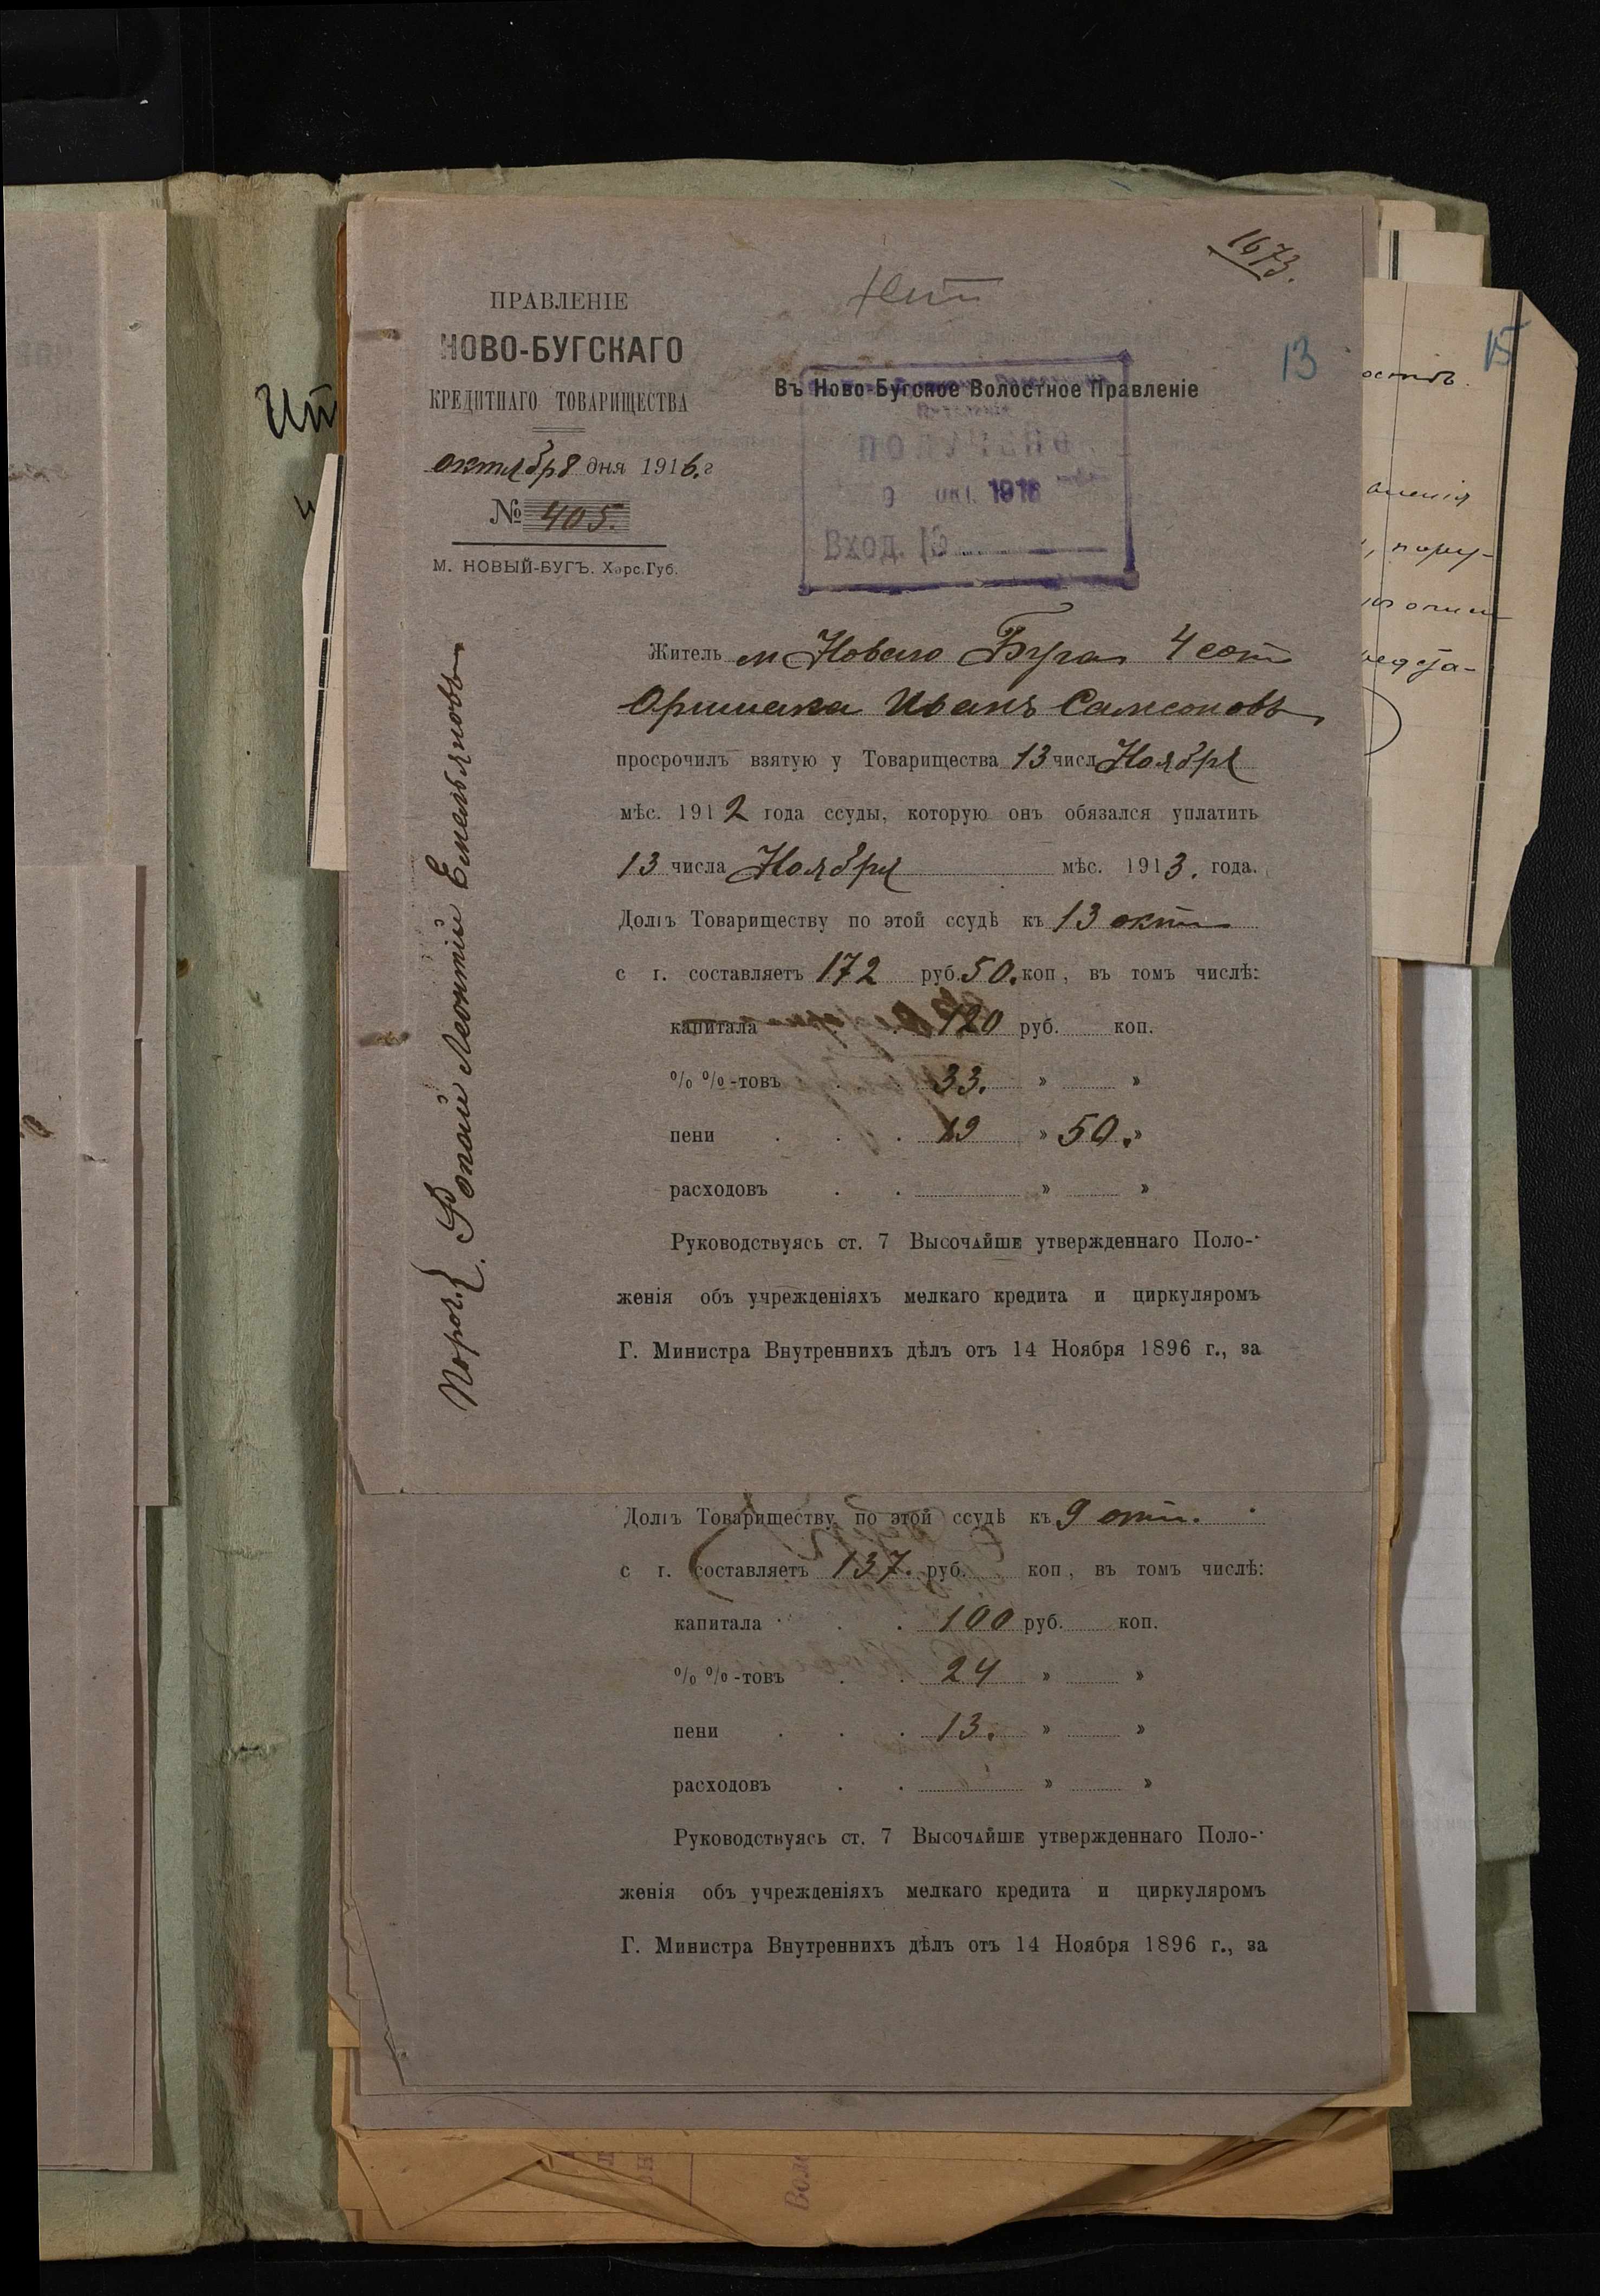 1673.
13
15
ПРАВЛЕНІЕ
НОВО-БУГСКАГО
КРЕДИТНАГО ТОВАРИЩЕСТВА
октября дня 1916.г
№ 405.
М. НОВЫЙ-БУГЪ. Херс.Губ.
Въ Ново-Бугское Волостное Правленіе
ПОЛУЧЕНО
9 ОКТ. 1916
Вход. №
Житель м Новаго Буга 4 сот
Иванъ Самсоновъ
просрочилъ взятую у Товарищества 13 числ Ноября
мѣс. 1912 года ссуды, которую онъ обязался уплатить
13 числа Ноября мѣс. 1913. года.
Долгъ Товариществу по этой ссудѣ къ 13 окт
с г. составляетъ 172 руб. 50. коп, въ томъ числѣ:
капитала . 120 руб. коп.
% %-товъ . . 33. » »
пени . . . 19 » 50. »
расходовъ . . » »
Руководствуясь ст. 7 Высочайше утвержденнаго Поло-
женія объ учрежденіяхъ мелкаго кредита и циркуляромъ
Г. Министра Внутреннихъ дѣлъ отъ 14 Ноября 1896 г., за
Леонтій Емельяновъ
Долгъ Товариществу по этой ссудѣ къ 9
с г. составляетъ 137. руб. коп, въ томъ числѣ:
капитала . . 100 руб. коп.
% %-товъ . . 24 » »
пени . . . 13. » »
расходовъ . . » »
Руководствуясь ст. 7 Высочайше утвержденнаго Поло-
женія объ учрежденіяхъ мелкаго кредита и циркуляромъ
Г. Министра Внутреннихъ дѣлъ отъ 14 Ноября 1896 г., за